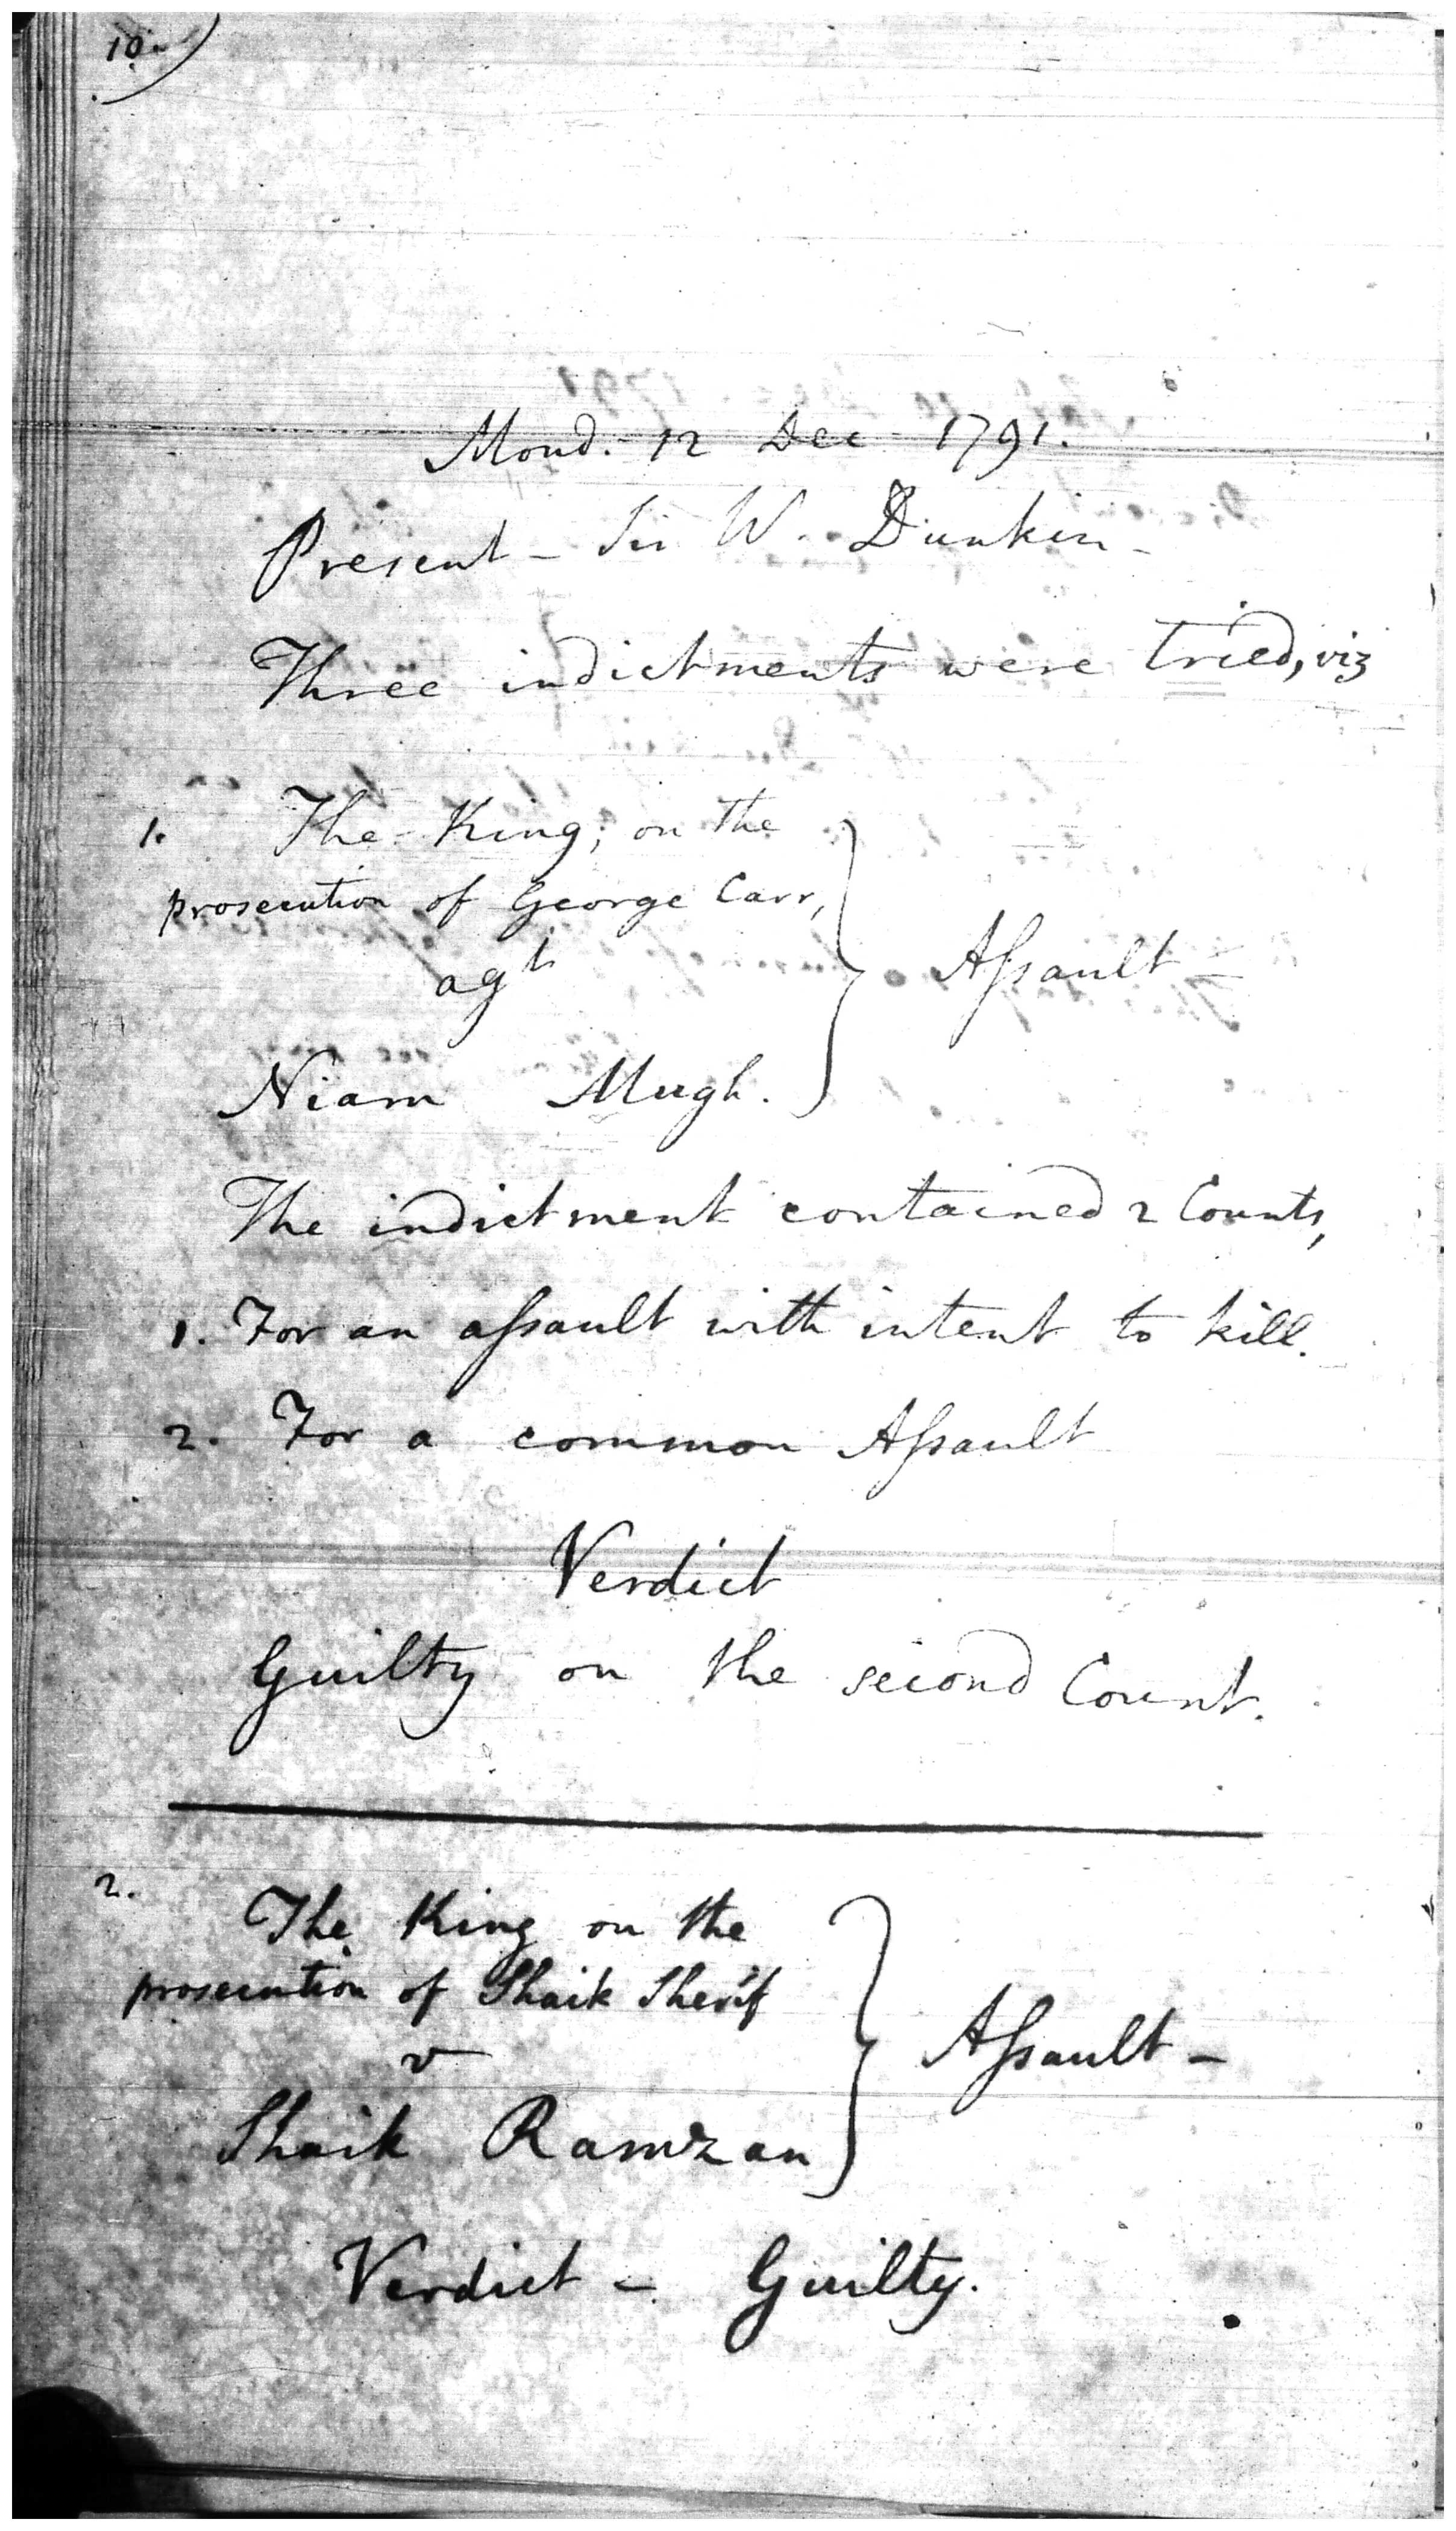 10.
Mond. 12 Dec 1791.
Present - Sir W. Dunkin -
Three indictments were tried, viz
1. The King, on the
prosecution of George Carr,
agt
Niam Mugh.
Assault -
The indictment contained 2 Counts,
1. For an assault with intent to kill.
2. For a common Assault
Verdict
Guilty on the second Count.
2. The King on the
prosecution of Shaik Sherif
v
Shaik Ramzan
Assault -
Verdict - Guilty.